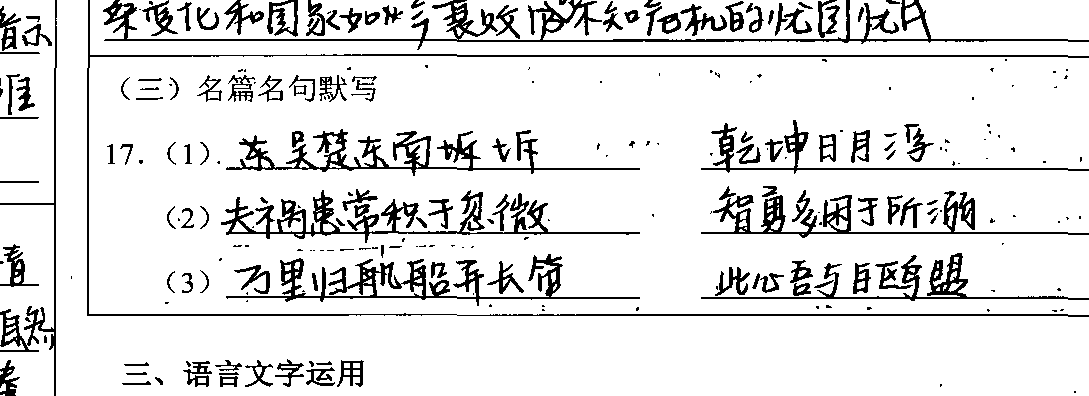 深变化和国家如此今衰败仍不知危机的忧国忧民
(三)名篇名句默写
17.(1)东吴楚东南坼坼 乾坤日月浮
(2)夫祸患常积于忽微 智勇多困于所溺
(3)万里归航船弄长笛 此心吾与白鸥盟
三、语言文字运用